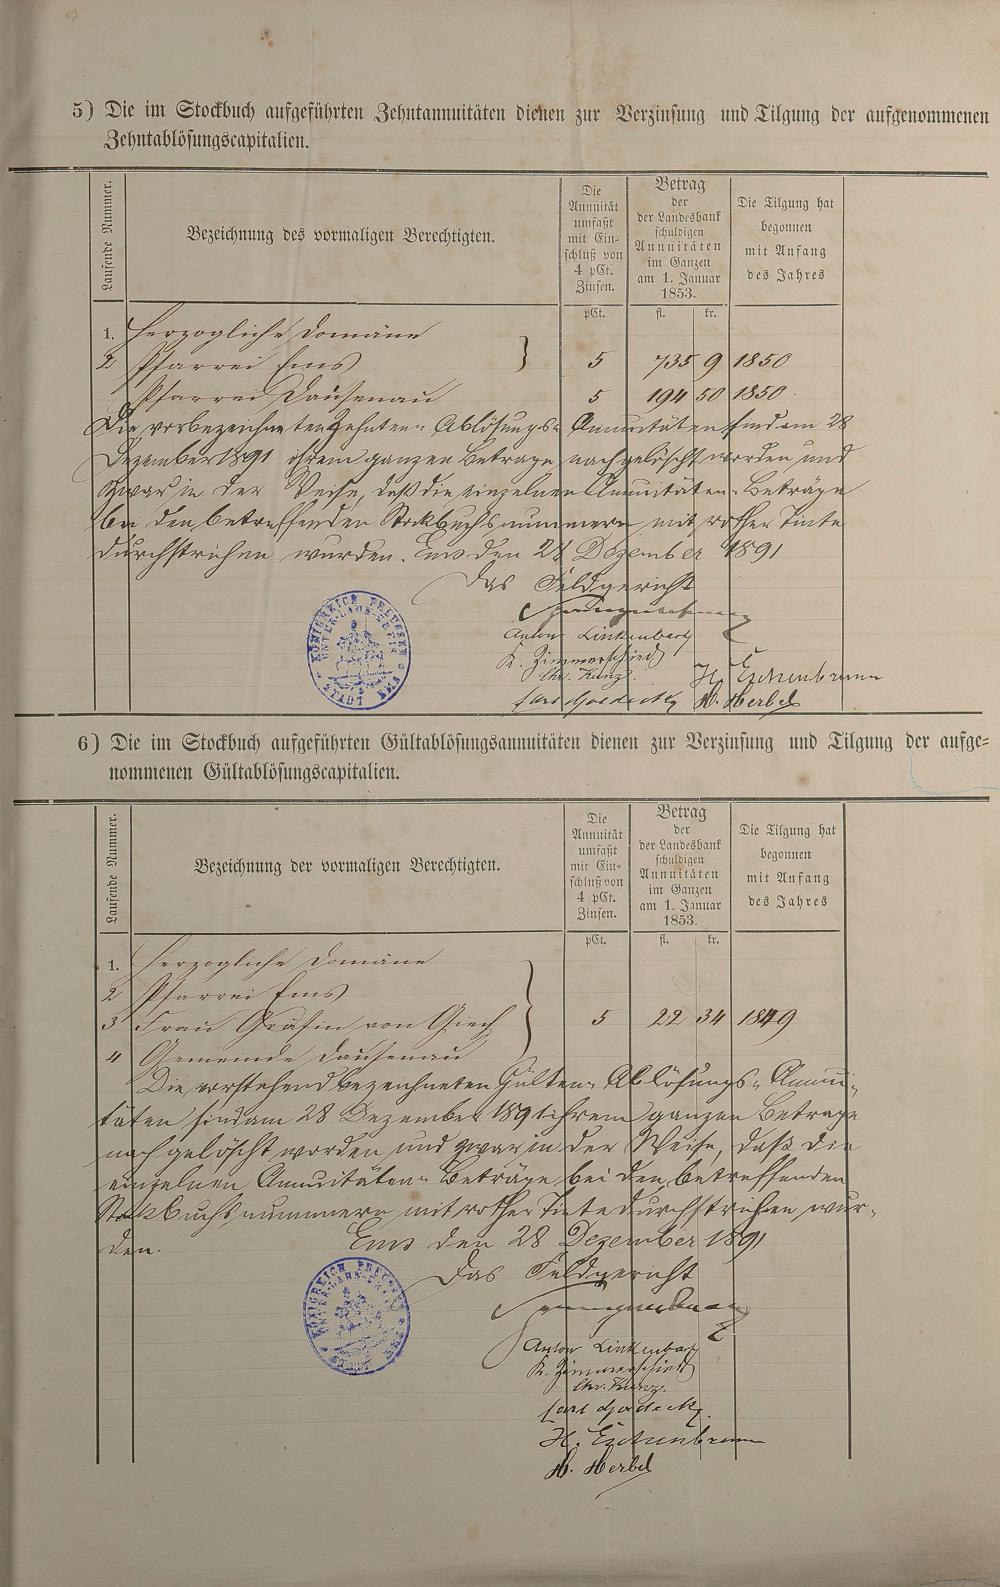 5) Die im Stockbuch aufgeführten Zehntannuitäten dienen zur Verzinsung und Tilgung der aufgenommenen
Zehntablösungscapitalien.
Laufende Nummer.
Bezeichnung des vormaligen Berechtigten.
Die
Annuität
umfaßt
mit Ein-
schluß von
4 pCt.
Zinsen.
Betrag
der
der Landesbank
schuldigen
Annuitäten
im Ganzen
am 1. Januar
1853.
Die Tilgung hat
begonnen
mit Anfang
des Jahres
pCt. fl. kr.
1. Herzogliche Domäne
2 Pfarrei Ems } 5 735 9 1850
Pfarrei Dausenau 5 194 50 1850
Die vorbezeichneten Zehnten- Ablösungs- Annuitäten sind am 28
Dezember 1891 ihrem ganzen Betrage nach gelöscht worden und
zwar in der Weise, daß die einzelnen Annuitäten- Beträge
bei den betreffenden Stockbuchsnummern mit rother Tinte
durchstrichen wurden. Ems den 28 Dezember 1891
Das Feldgericht
Anton Linkenbach
K. Zimmerschied
Chr. Kunz.
H. Eschenbrenn
Carl Goedecke H. Herbel
KÖNIGREICH PREUSSEN
UNTER-LAHN-KREIS
STADT EMS
6) Die im Stockbuch aufgeführten Gültablösungsannuitäten dienen zur Verzinsung und Tilgung der aufge=
nommenen Gültablösungscapitalien.
Laufende Nummer.
Bezeichnung der vormaligen Berechtigten.
Die
Annuität
umfaßt
mit Ein-
schluß von
4 pCt.
Zinsen.
Betrag
der
der Landesbank
schuldigen
Annuitäten
im Ganzen
am 1. Januar
1853.
Die Tilgung hat
begonnen
mit Anfang
des Jahres
pCt. fl. kr.
1. Herzogliche Domäne
2 Pfarrei Ems
3 Frau Gräfin von Giech } 5 22 34 1849
4 Gemeinde Dausenau
Die vorstehend bezeichneten Gülten- Ablösungs- Annui-
täten sind am 28 Dezember 1891 ihrem ganzen Betrage
nach gelöscht worden und zwar in der Weise, daß die
einzelnen Annuitäten- Beträge bei den betreffenden
Stockbuchsnummern mit rother Tinte durchstrichen wur-
den. Ems den 28 Dezember 1891
Das Feldgericht
Anton Linkenbach
K. Zimmerschied
Chr. Kunz.
Carl Goedecke.
H. Eschenbrenn
H. Herbel
KÖNIGREICH PREUSSEN
UNTER-LAHN-KREIS
STADT EMS